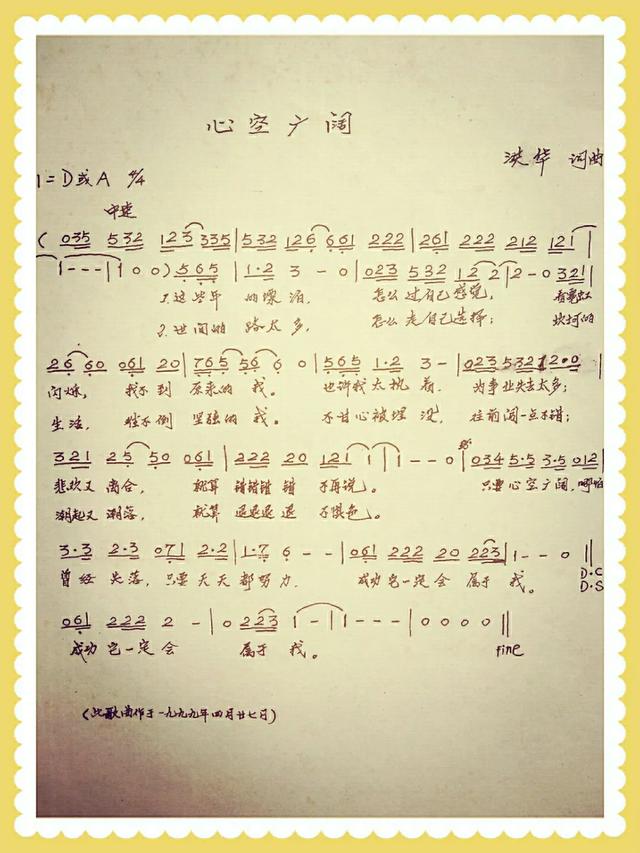 心空广阔
洪华 词曲
1=D或A 4/4
中速
( 035 532 123 335 | 532 126 661 222 | 261 222 212 121 |
1 - - - | 1 0 0 ) 565 | 1·2 3 - 0 | 023 532 12 2 | 2 - 0 321 |
1.这些年 的漂泊, 怎么过自己感觉, 看霓虹
2.世间的 路太多, 怎么走自己选择; 坎坷的
26 60 061 20 | 765 56 6 0 | 565 1·2 3 - | 023 532 12·0 |
闪烁, 找不到 原来的 我。 也许我太执着, 为事业失去太多;
生活, 难不倒 坚强的 我。 不甘心被埋没, 往前闯一点不错;
321 25 50 061 | 222 20 121 1 | 1 - - 0 | 034 5·5 3·5 012 |
悲欢又 离合, 就算 错错错 错 不再说。 只要 心空广阔, 哪怕
潮起又 潮落, 就算 退退退 退 不惧色。
3·3 2·3 071 2·2 | 1·7 6 - - | 061 222 20 223 | 1 - - 0 ||
曾经 失落, 只要 天天 都努力. 成功它一定会 属于 我。 D·C
D·S
061 222 2 - | 0 223 1 - | 1 - - - | 0 0 0 0 ||
成功它一定会 属于 我。 fine
(此歌曲作于一九九九年四月廿七日)